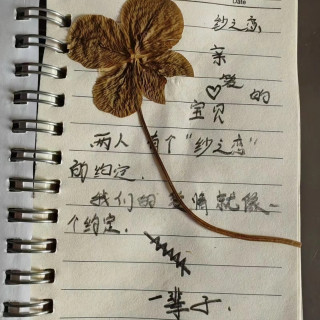 Date
纱之恋
亲
爱的
宝贝
两人有个“纱之恋”
的约定.
我们的爱情就像一
个约定.
一辈子.